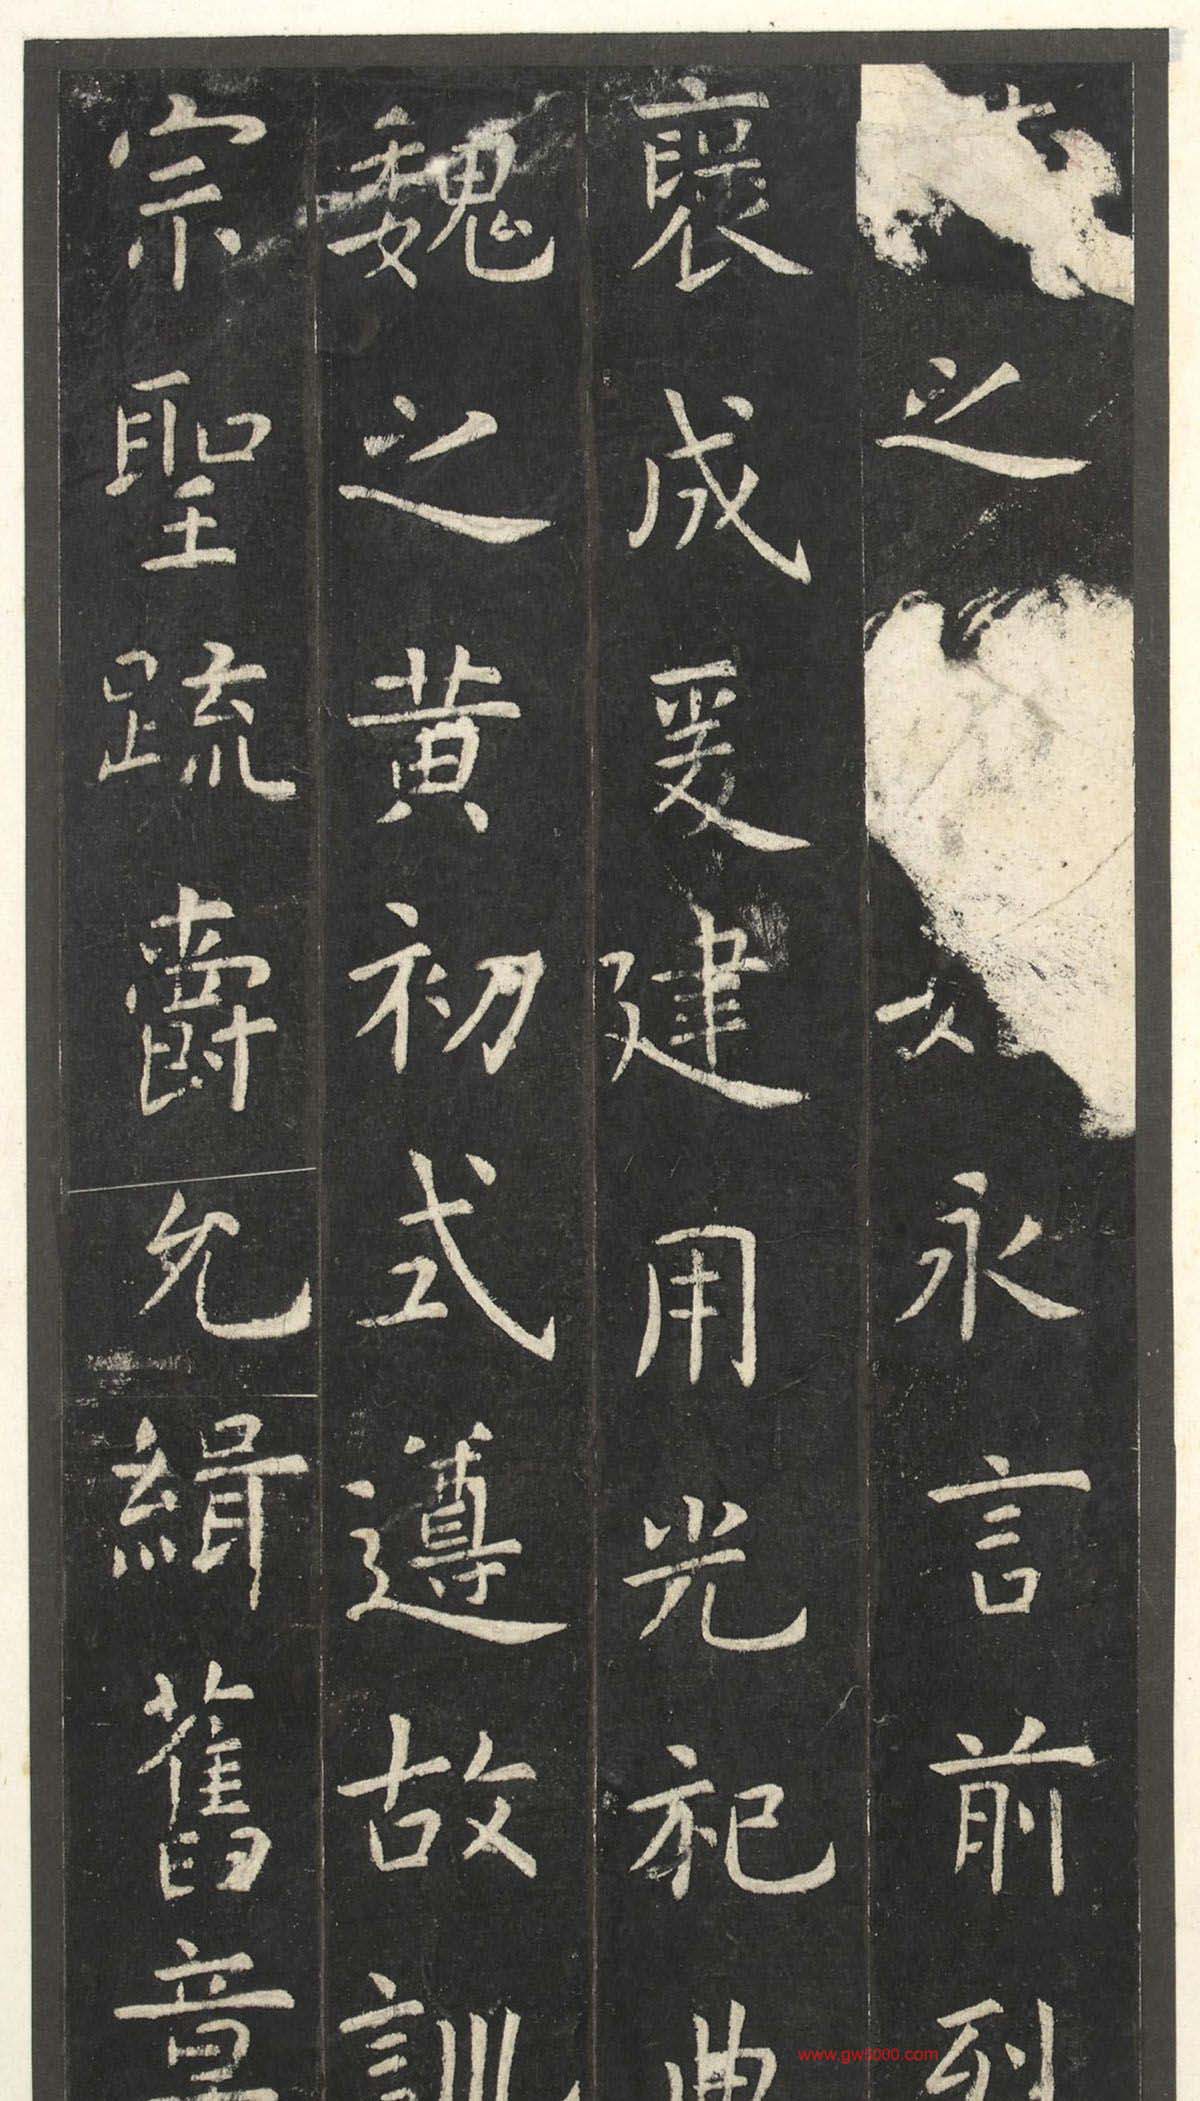 之永言前列
褒成爰建用光祀典
魏之黄初式遵故訓
宗聖疏爵允緝舊章
www.gw5000.com